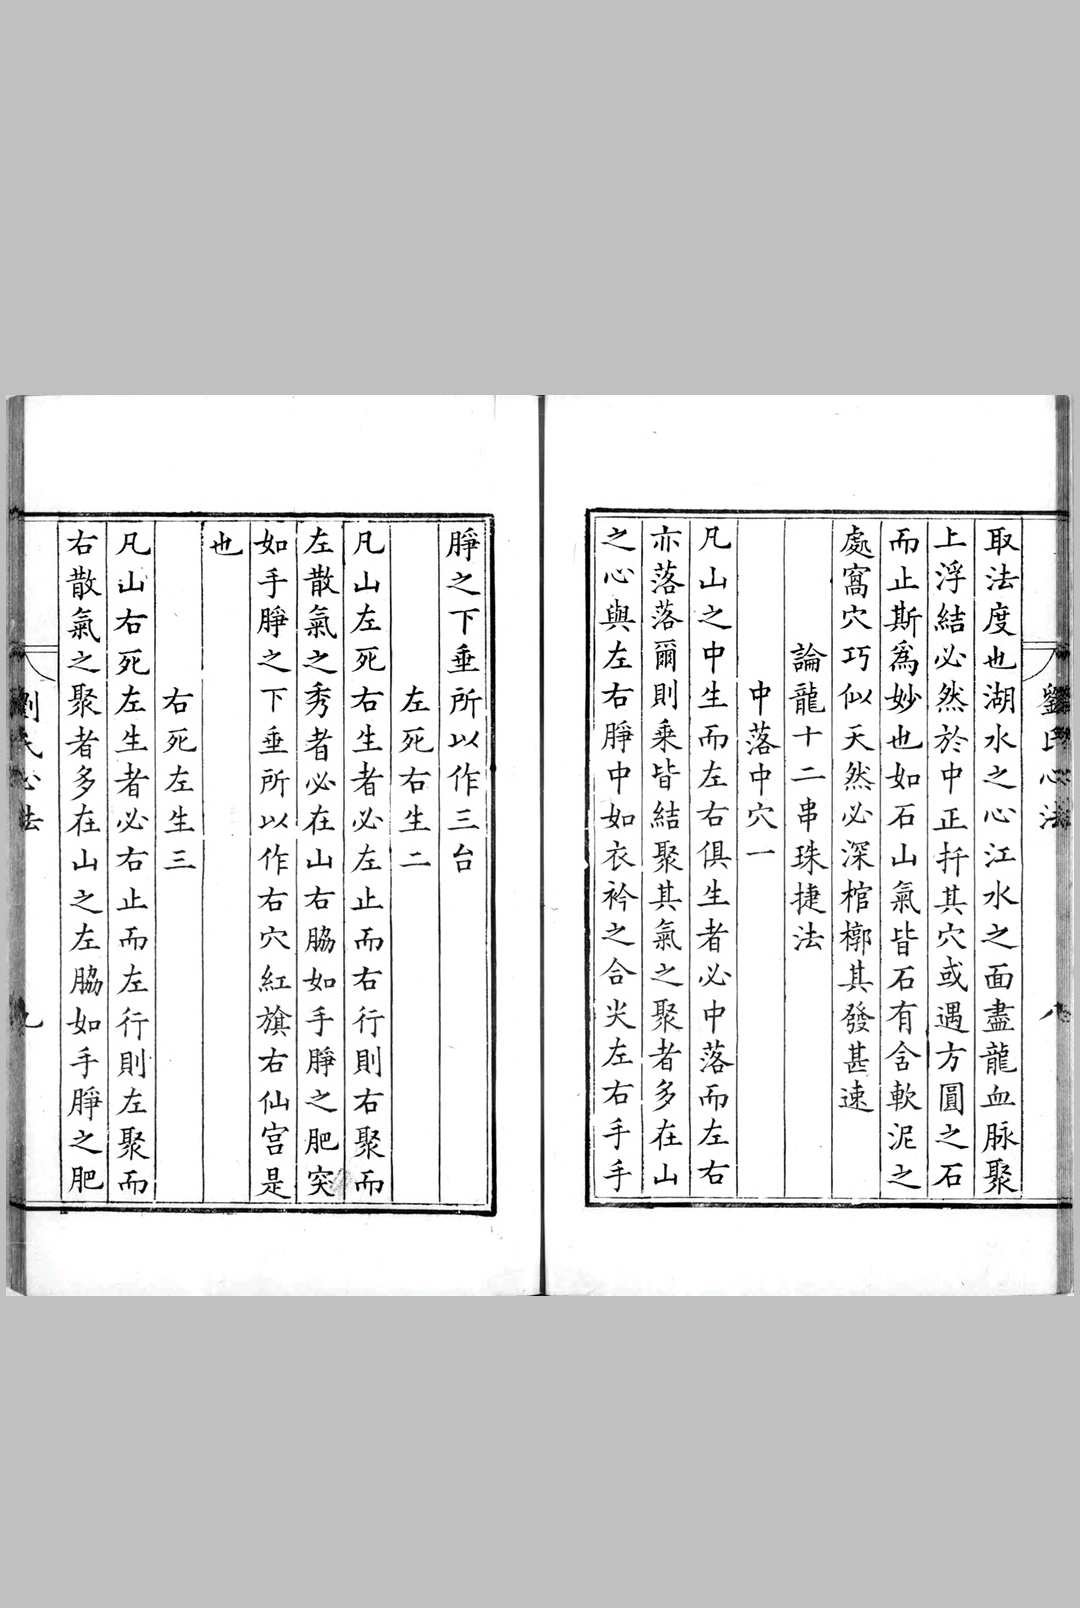 劉氏心法
八
取法度也湖水之心江水之面盡龍血脉聚
上浮結必然於中正扦其穴或遇方圓之石
而止斯爲妙也如石山氣皆石有含軟泥之
處窩穴巧似天然必深棺槨其發甚速
論龍十二串珠捷法
中落中穴一
凡山之中生而左右俱生者必中落而左右
亦落落爾則乘皆結聚其氣之聚者多在山
之心與左右腁中如衣衿之合尖左右手手
腁之下垂所以作三台
左死右生二
凡山左死右生者必左止而右行則右聚而
左散氣之秀者必在山右脇如手腁之肥突
如手腁之下垂所以作右穴紅旗右仙宫是
也
右死左生三
凡山右死左生者必右止而左行則左聚而
右散氣之聚者多在山之左脇如手腁之肥
劉氏心法
九